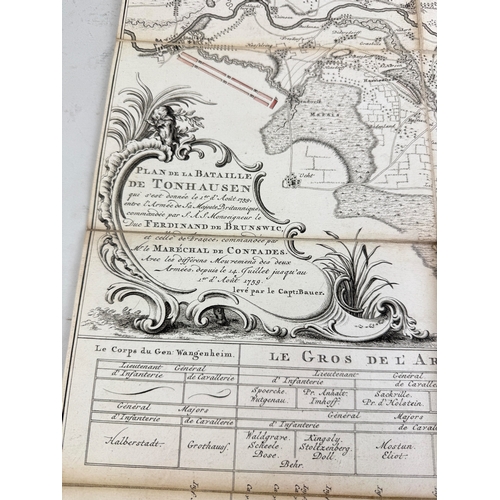 Plan de la Bataille
de Tonhausen
qui s'est donnée le 1.er d'Août 1759.
entre l'Armée de Sa Majesté Britannique,
commandée par S.A.S. Monseigneur le
Duc Ferdinand de Brunswic,
et celle de France, commandée par
Mr. le Maréchal de Contades.
Avec les différens Mouvemens des deux
Armées, depuis le 14. Juillet jusqu'au
1.er d'Août 1759.
levé par le Capt: Bauer.
Le Corps du Gen Wangenheim.
Le Gros de l'Ar
Lieutenant Général
d'Infanterie de Cavallerie
Lieutenant Général
d'Infanterie de Cavalle
Spoercke. Pr. Anhalt. Sackville.
Wutgenau. Imhoff. Pr. d'Holstein.
Général Majors
d'Infanterie de Cavallerie
Général Majors
d'Infanterie de Cavalle
Halberstadt. Grothaus.
Waldgrave. Kingsly. Mostun.
Scheele. Stoltzenberg. Eliot.
Bose. Doll.
Behr.